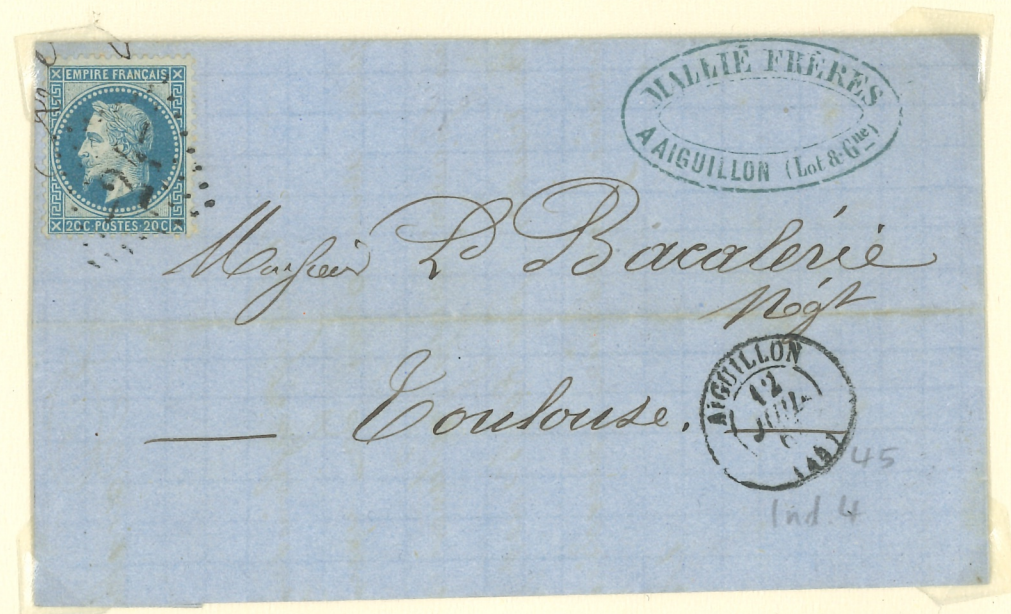 EMPIRE FRANÇAIS
20C POSTES 20C
MALLIÉ FRÈRES
A AIGUILLON (Lot & Gne)
Monsieur L Bacalérie
Négt
Toulouse.
AIGUILLON
12
JUIL
(45)
45
Ind. 4